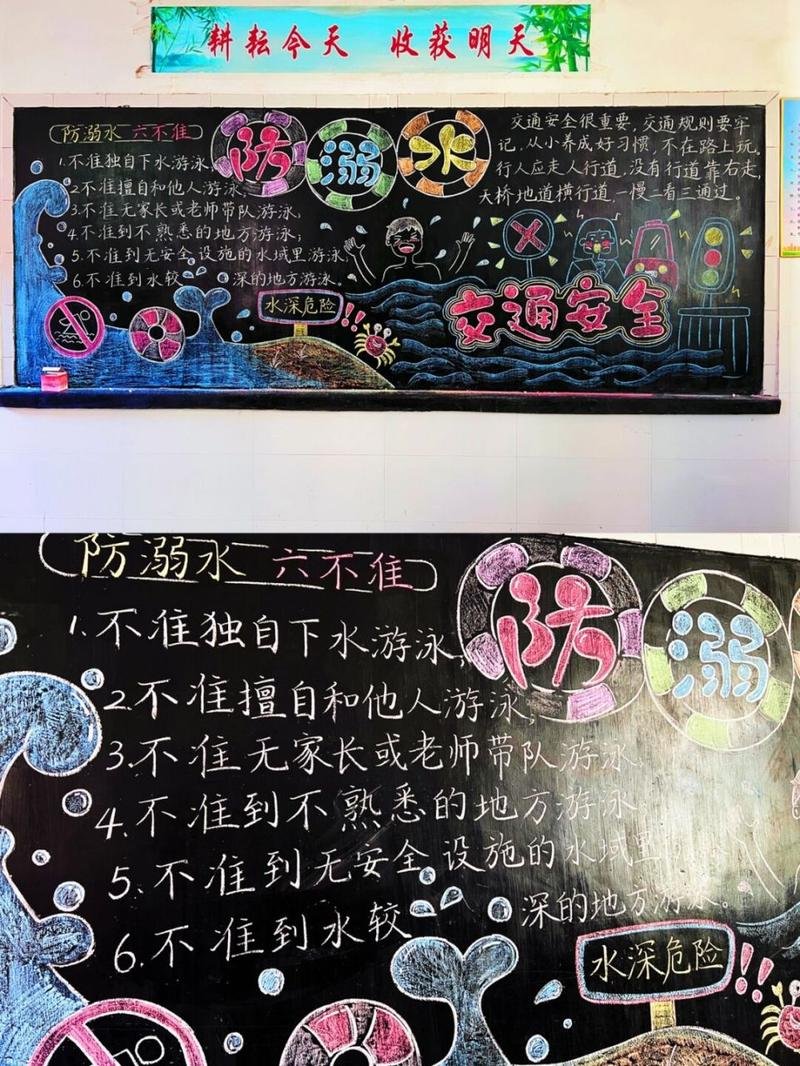 耕耘今天 收获明天
防溺水 六不准
1.不准独自下水游泳;
2.不准擅自和他人游泳;
3.不准无家长或老师带队游泳;
4.不准到不熟悉的地方游泳;
5.不准到无安全设施的水域里游泳;
6.不准到水较深的地方游泳。
防溺水
交通安全很重要,交通规则要牢
记,从小养成好习惯,不在路上玩。
行人应走人行道,没有行道靠右走,
天桥地道横行道,一慢二看三通过。
水深危险!!
交通安全
防溺水 六不准
1.不准独自下水游泳;
2.不准擅自和他人游泳;
3.不准无家长或老师带队游泳
4.不准到不熟悉的地方游泳
5.不准到无安全设施的水域里
6.不准到水较深的地方游泳。
防溺
水深危险!!